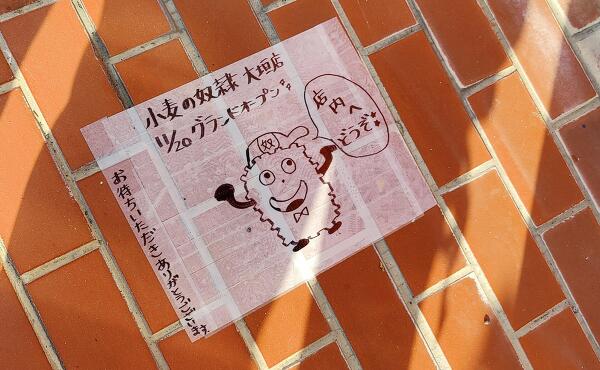 小麦の奴隷 大垣店
11/20 グランドオープン!!
店内へ
どうぞ!
奴
お待ちいただきありがとうございます